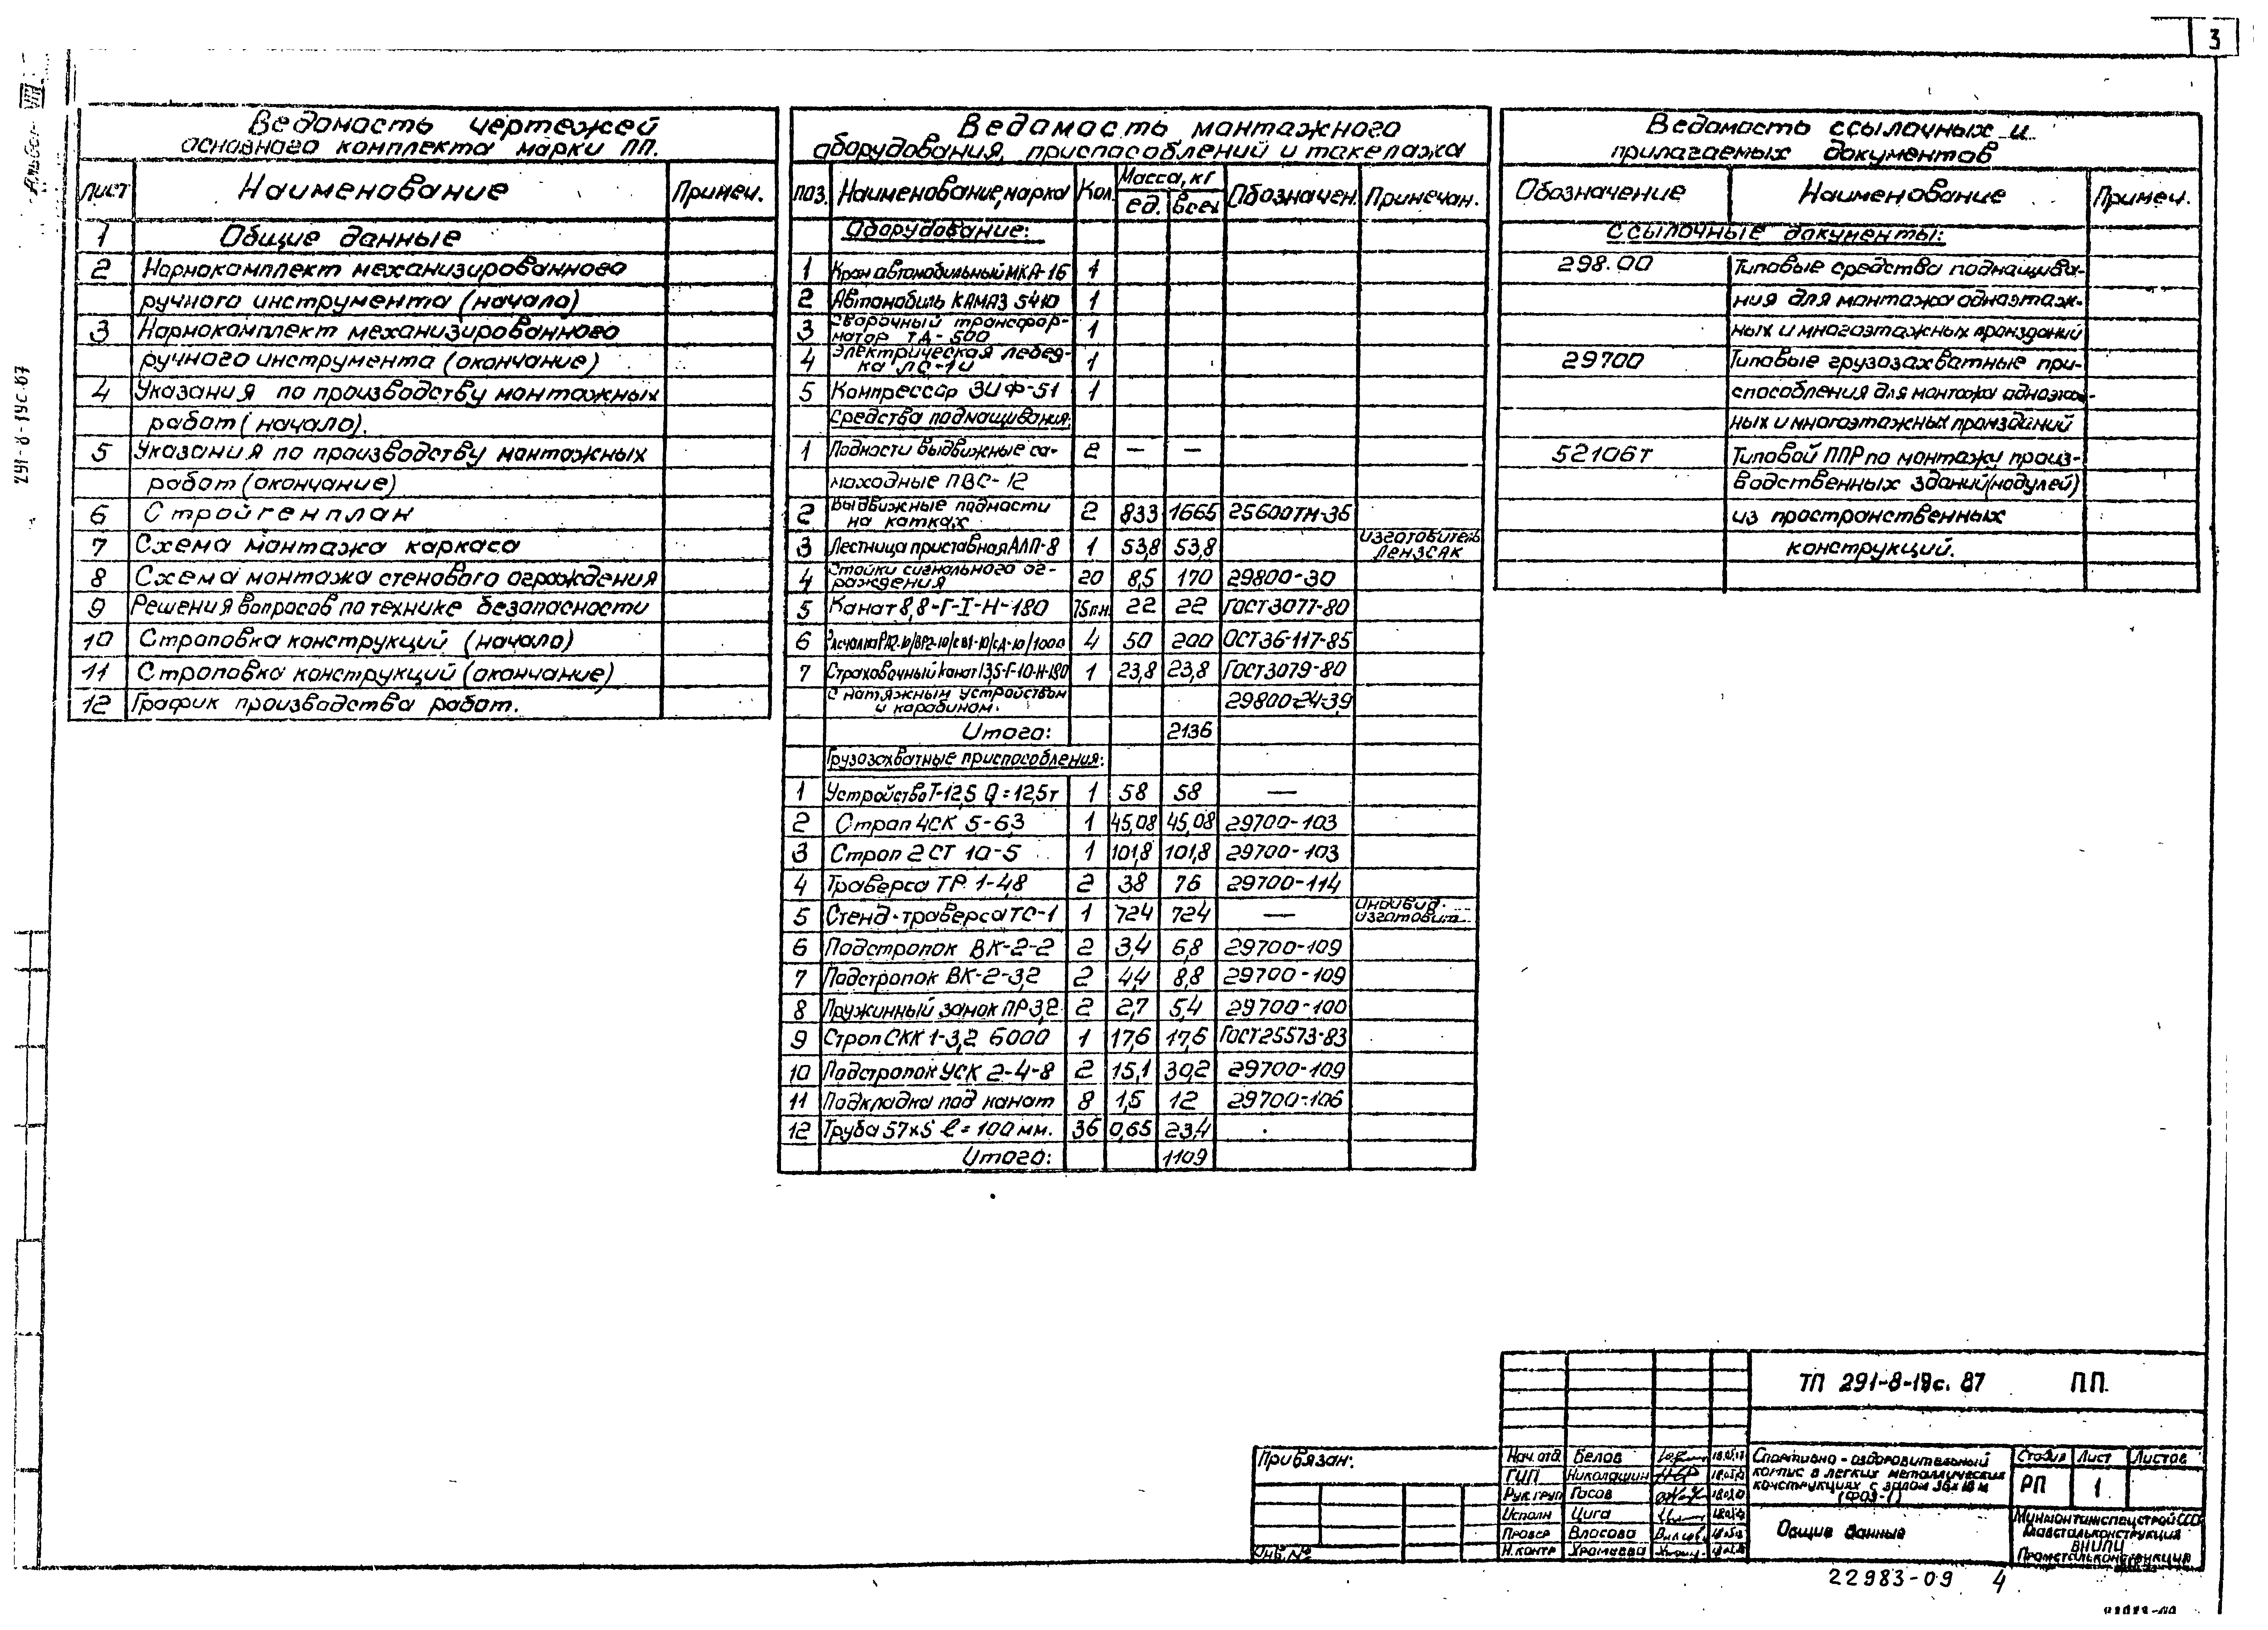 3
Альбом VIII
291-8-19с.87
Ведомость чертежей
основного комплекта марки ПП.
Лист Наименование Примеч.
1 Общие данные
2 Нормокомплект механизированного
ручного инструмента (начало)
3 Нормокомплект механизированного
ручного инструмента (окончание)
4 Указания по производству монтажных
работ (начало).
5 Указания по производству монтажных
работ (окончание)
6 Стройгенплан
7 Схема монтажа каркаса
8 Схема монтажа стенового ограждения
9 Решения вопросов по технике безопасности
10 Строповка конструкций (начало)
11 Строповка конструкций (окончание)
12 График производства работ.
Ведомость монтажного
оборудования, приспособлений и такелажа
поз. Наименование, марка Кол. Масса, кг Обозначен. Примечан.
ед. всех
Оборудование:
1 Кран автомобильный МКА-16 1
2 Автомобиль КАМАЗ 5410 1
3 Сварочный трансфор-
матор ТД-500 1
4 Электрическая лебед-
ка 1
5 Компрессор ЗИФ-51 1
Средства подмащивания:
1 Подмости выдвижные са- 2 — —
моходные ПВС-12
2 Выдвижные подмости
на катках 2 833 1665 25600ТМ-36
3 Лестница приставная АЛП-8 1 53,8 53,8 изготовитель
4 Стойки сигнального ог-
раждения 20 8,5 170 29800-30
5 Канат 8,8-Г-I-Н-180 75п.м. 22 22 ГОСТ3077-80
6 4 50 200 ОСТ36-117-85
7 Страховочный канат 13,5-Г-10-Н-180 1 23,8 23,8 ГОСТ3079-80
с натяжным устройством
и карабином. 29800-24-39
Итого: 2136
Грузозахватные приспособления:
1 Устройство Т-12,5 Q=12,5т 1 58 58 —
2 Строп 4СК 5-6,3 1 45,08 45,08 29700-103
3 Строп 2СТ 10-5 1 101,8 101,8 29700-103
4 Траверса ТР 1-4,8 2 38 76 29700-114
5 Стенд-траверса ТС-1 1 724 724 — индивид.
изготовит.
6 Подстропок ВК-2-2 2 3,4 6,8 29700-109
7 Подстропок ВК-2-3,2 2 4,4 8,8 29700-109
8 Пружинный замок ПР3,2 2 2,7 5,4 29700-100
9 Строп СКК 1-3,2 6000 1 17,6 17,6 ГОСТ25573-83
10 Подстропок УСК 2-4-8 2 15,1 30,2 29700-109
11 Подкладка под канат 8 1,5 12 29700-106
12 Труба 57х5 ℓ=100мм. 36 0,65 23,4
Итого: 1109
Ведомость ссылочных и
прилагаемых документов
Обозначение Наименование Примеч.
Ссылочные документы:
298.00 Типовые средства подмащива-
ния для монтажа одноэтаж-
ных и многоэтажных промзданий
29700 Типовые грузозахватные при-
способления для монтажа одноэтаж-
ных и многоэтажных промзданий
52106т Типовой ППР по монтажу произ-
водственных зданий (модулей)
из пространственных
конструкций.
ТП 291-8-19с. 87 ПП.
Привязан:
Инв.№
Нач.отд. Белов
ГИП Николашин
Рук.груп Гасов
Исполн Цига
Провер Власова
Н.контр
Спортивно-оздоровительный
корпус в легких металлических
конструкциях с залом 36х18м
(ФОЗ-I)
Стадия Лист Листов
РП 1
Общие данные
Минмонтажспецстрой СССР
Главстальконструкция
ВНИПИ
Промстальконструкция
22983-09 4